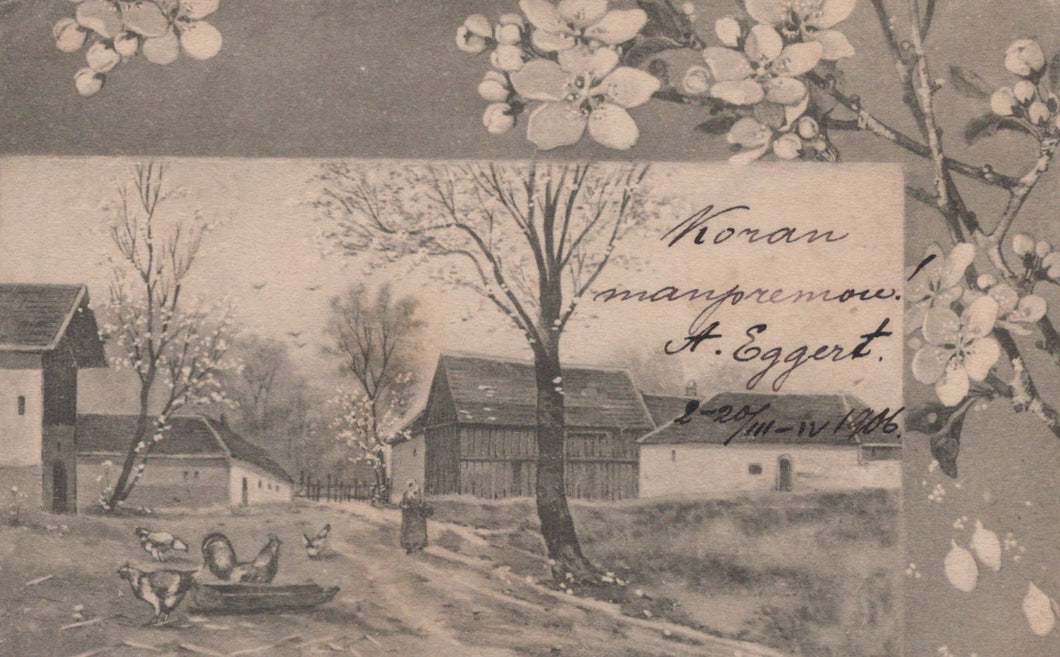 Koran
manpremon!
A. Eggert.
2-20/III-IV 1906.